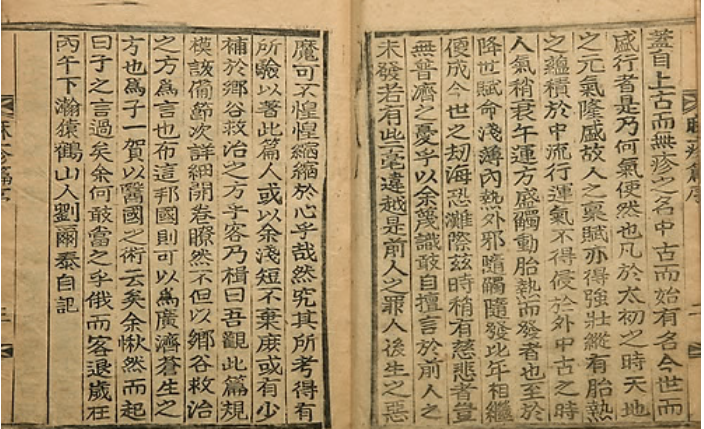 麻疹篇序 二
蓋自上古而無疹之名中古而始有名今世而
盛行者是乃何氣使然也凡於太初之時天地
之元氣隆盛故人之稟賦亦得強壯縱有胎熱
之蘊積於中流行運氣不得侵於外中古之時
人氣稍衰午運方盛觸動胎熱而發者也至於
降世賦命淺薄內熱外邪隨觸隨發比年相繼
便成今世之劫海恐灘際玆時稍有慈悲者豈
無普濟之憂乎以余蔑識敢自擅言於前人之
未發者有些毫違越是前人之罪人後生之惡
魔可不惶惶縮縮於心乎哉然究其所考得有
所驗以著此篇人或以余淺短不棄庶或有少
補於鄉谷救治之方乎客乃楫曰吾觀此篇規
模該備節次詳細開卷瞭然不但以鄉谷救治
之方爲言也布這邦國則可以爲廣濟蒼生之
方也爲子一賀以醫國之術云矣余愀然而起
曰子之言過矣余何敢當之乎俄而客退歲在
丙午下瀚猿鶴山人劉爾泰自記
麻疹篇序 三